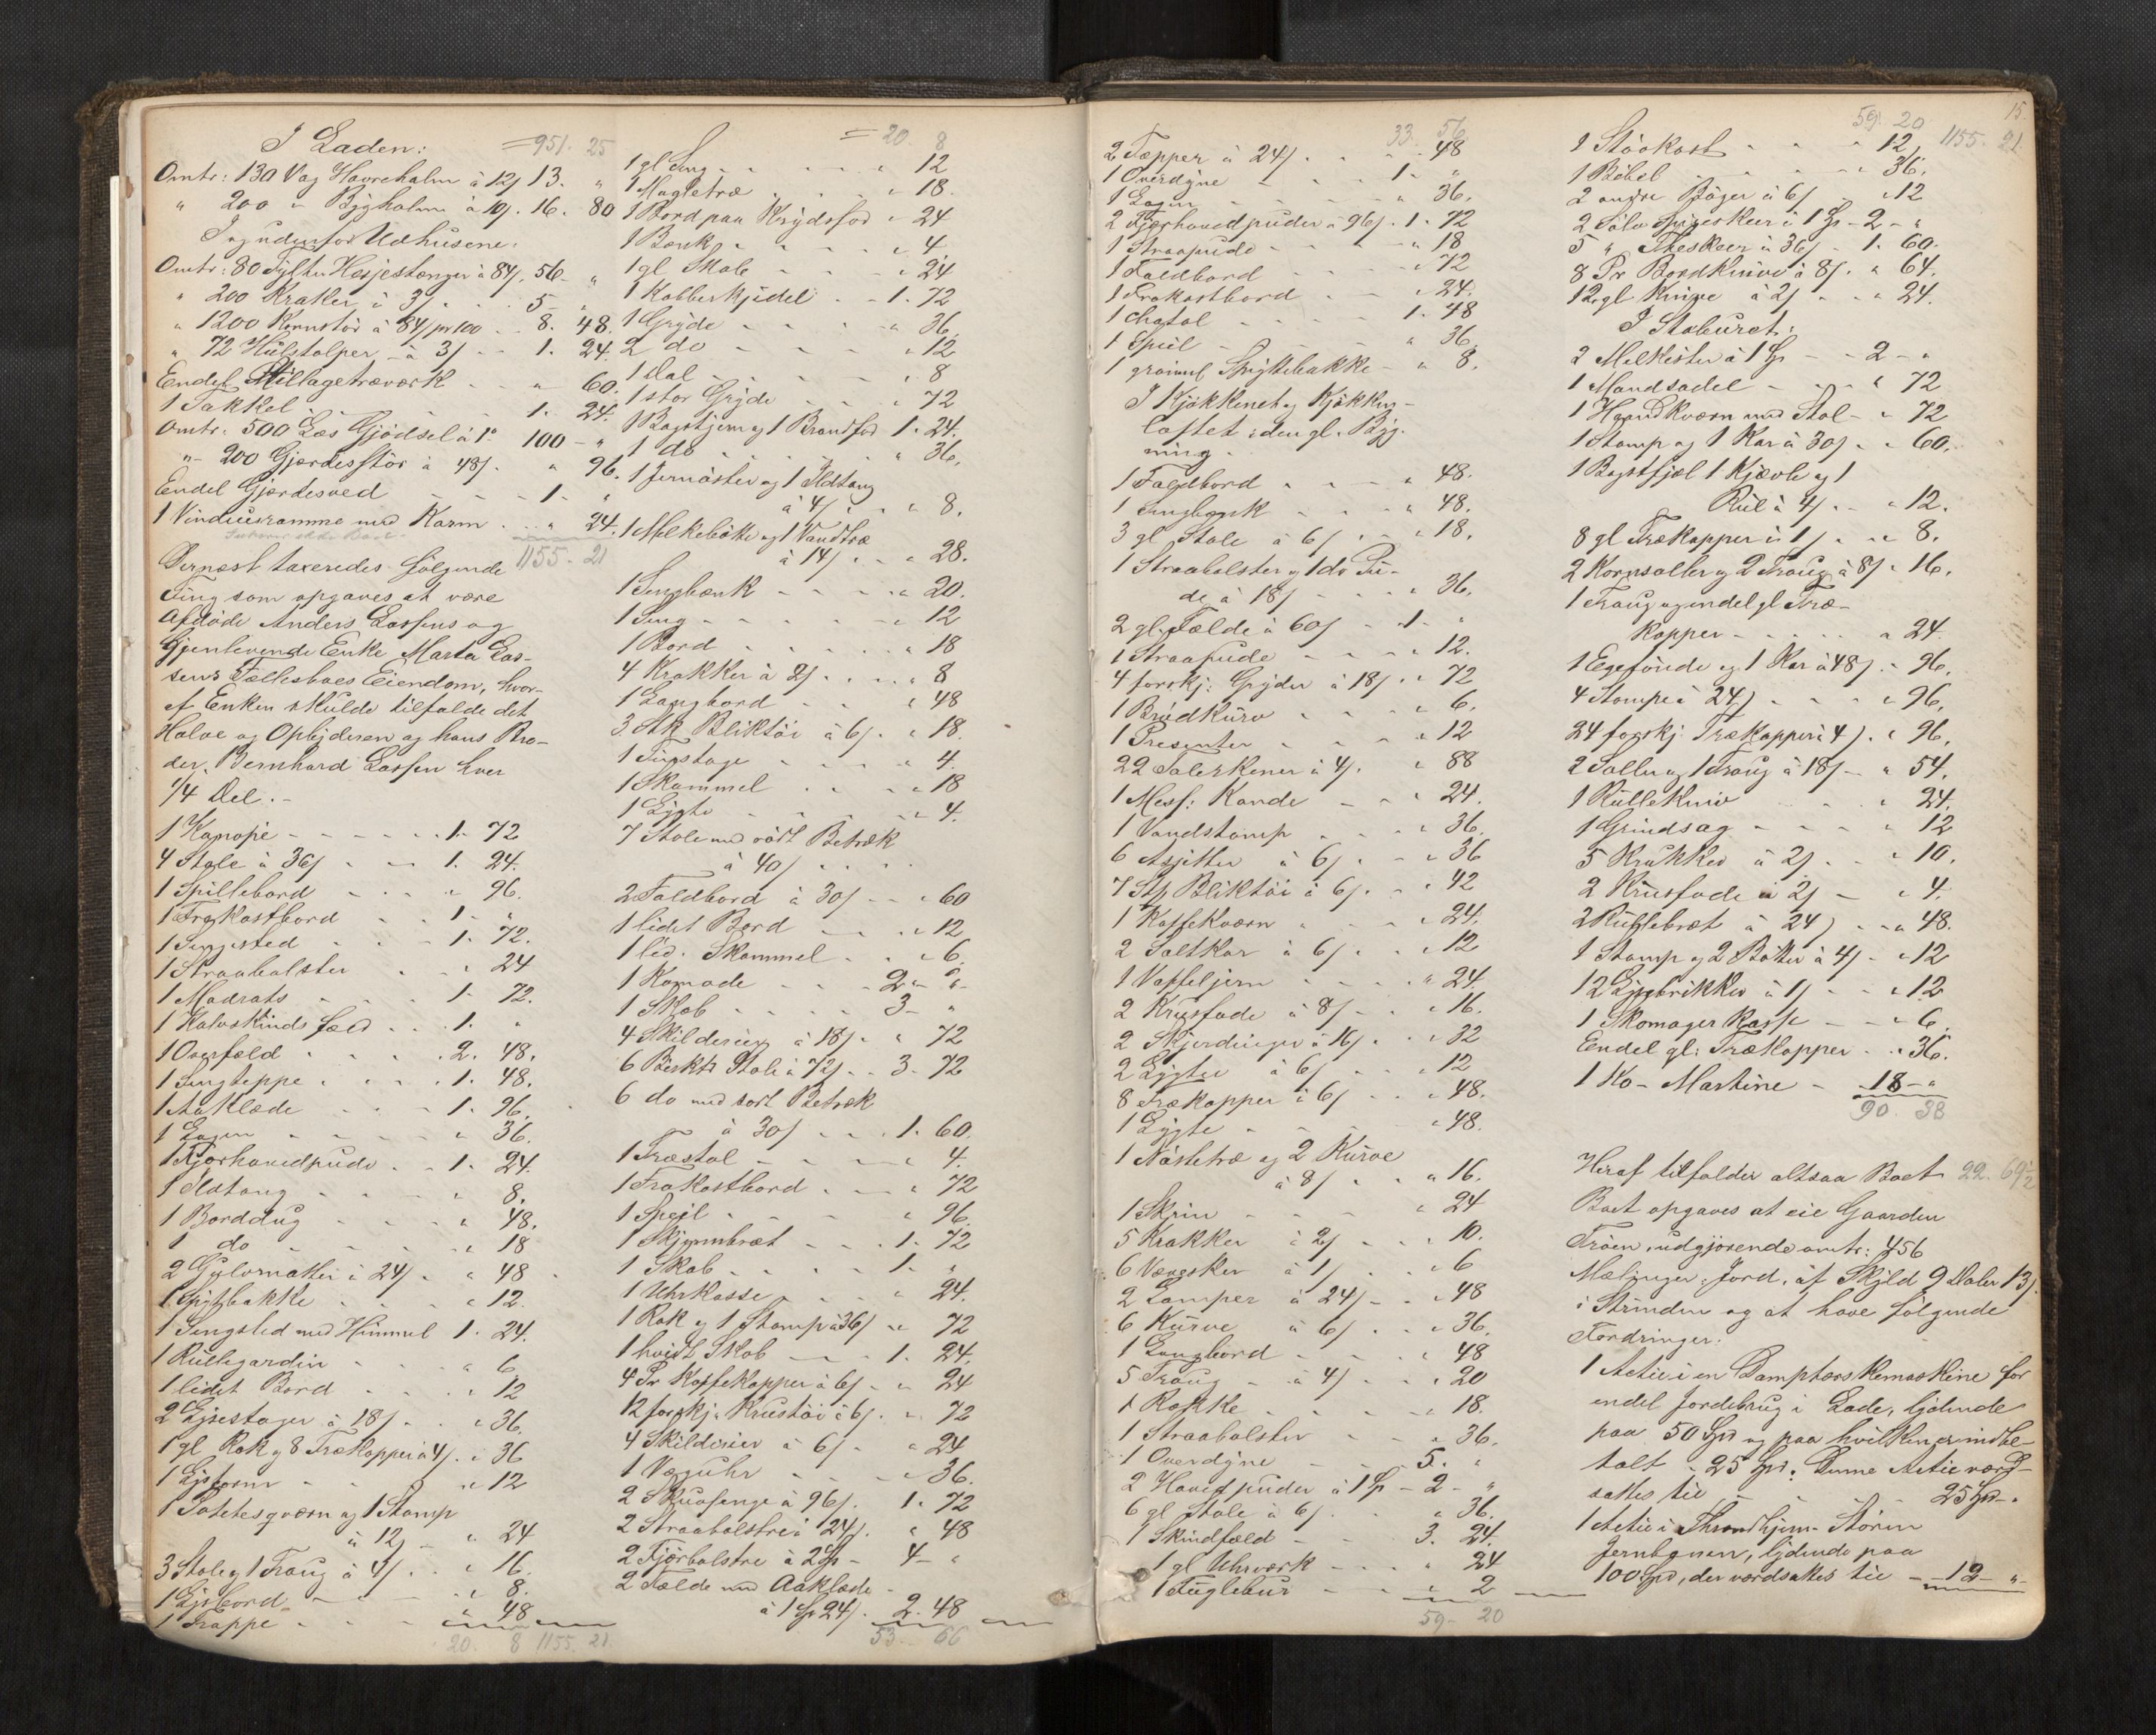 I Laden:
= 951. 25
Omtr: 130 Vag Havrehalm à 12/ 13. "
" 200 " Byghalm à 10/. 16. 80
I og udenfor Udhusene:
Omtr: 80 Tylter Hesjestænger à 84/. 56 - "
" 200 Kraker à 3/ . . . 5 - "
" 1200 Kornstör à 84/ pr 100 . . 8. 48.
" 72 Hülstolper à 3/ . . 1. 24.
Endel Stillagetræværk . . " 60.
1 Takkel . . . . 1. 24.
Omtr. 500 Læs Gjödsel à 1" 100 - "
" 200 Gjærdesstör à 48/. " 96.
Endel Gjærdesved - - - 1. "
1 Vinduesramme med Karm . . " 24.
1155. 21
Dernæst taxeredes følgende
Ting som opgaves at være
Afdöde Anders Lassens og
Gjenlevende Enke Marta Las-
sens Fællesboes Eiendom, hvor-
af Enken skulde tilfalde det
Halve og Opbyderen og hans Bro-
der, Bernhard Lassen hver
1/4 Del. -
1 Kanapé - - - - - 1. 72
4 Stole à 36/ . . - 1. 24.
1 Spillebord . . . " 96.
1 Frokostbord . . 1. "
1 Sengested . . - 1. 72.
1 Straabolster . . " 24
1 Madrats . . . 1. 72.
1 Kalveskinds fæld . . 1. "
1 Overfæld . . . . 2. 48.
1 Sengteppe . . . . 1. 48.
1 Aaklæde . . . 1. 96.
1 Lagen . . . . " 36.
1 Fjærhovedpude . . 1. 24.
1 Ildtang . . . . " 8.
1 Borddug . . . " 48.
1 do . . . . " 18
2 Gulvmatter à 24/. " 48
1 Spytbakke . . . " 12.
1 Sengsted med Himmel 1. 24.
1 Rullegardin . . . " 6
1 lidet Bord . . . " 12
2 Lysestager à 18/ . . " 36.
1 gl Rok og 8 Trækopper à 4/. " 36
1 Lysform . . . . " 12
1 Potetesqværn og 1 Stamp
à 12/ . . " 24
3 Stole og 1 Traug à 4/ . . " 16.
1 Lysbord . . . . " 8.
1 Trappe . . . . " 48
20. 8 1155. 21
= 20 8
1 gl Seng . . . . " 12
1 Mugletræ . . . " 18.
1 Bord paa Krydsfod " 24
1 Bænk . . . . " 4.
1 gl Skab . . . " 24
1 Kobberkjedel . . 1. 72
1 Gryde . . . . " 36.
2 do . . . . " 12
1 Dal . . . . " 8
1 stor Gryde . . " 72
1 Bagstjern og 1 Brandfod 1. 24.
1 do . . . . " 36.
1 Jernöster og 1 Ildtang
à 4/ . . " 8.
1 Melkebötte og 1 Vandtræ
à 14/ . . " 28.
1 Sengbænk . . . . " 20.
1 Seng . . . . " 12
1 Bord . . . . . " 18
4 Krakker à 2/ . . . . " 8
1 Langbord . . . " 48
3 Stk Bliktöi à 6/. " 18.
1 Tingstage . . . . " 4.
1 Skammel . . . " 18
1 Lygte . . . . " 4.
7 Stole med rödt Betræk
à 40/ . . . .
2 Foldbord à 30/ . . " 60
1 lidet Bord . . . " 12
1 lid. Skammel . . " 6.
1 Komode . . . 2 - "
1 Skab . . . . 3 - "
4 Skilderier à 18/. " 72
6 Birkt: Stole à 72/ . . 3. 72
6 do med sort Betræk
à 30/ . . . 1. 60.
1 Træstol . . . . " 4.
1 Frokostbord . . . " 72
1 Speil . . . . " 96.
1 Skjænnbræt . . . 1. 72
1 Skab . . . . 1. "
1 Uhrkasse . . . " 24.
1 Rok og 1 Stamp à 36/ " 72
1 hvidt Skab . . 1. 24.
4 Pr Kaffekopper à 6/ . " 24
12 forskj: Krustöi à 6/ . " 72
4 Skilderier à 6/ . " 24
1 Væguhr . . . " 36.
2 Skuvsenge à 96/. 1. 72
2 Straabolstre à 24/. " 48
2 Fjærbolstre à 2 Sp - 4 - "
2 Fælde med Aaklæde -
à 1 Sp 24/. 2. 48
53. 66
33. 56
2 Tæpper à 24/ . . . " 48
1 Overdyne . . . . 1. "
1 Lagen . . . . " 36.
2 Fjærhovedpuder à 96/. 1. 72
1 Straapude . . . . " 18
1 Foldbord . . . " 72
1 Frokostbord . . . " 24.
1 Chatol . . . . 1. 48
1 Speil . . . . " 36.
1 grammel Spyttebakke - " 8.
I Kjökkenet og Kjökken-
loftet i den gl. Byg-
ning.
1 Foldbord . . . " 48.
1 Sengbænk . . . " 48.
3 gl Stole à 6/ . . " 18.
1 Straabolster og 1 do Pu-
de à 18/ . . . " 36.
2 gl. Fælde à 60/ . 1. "
1 Straapude . . . " 12.
4 forskj: Gryder à 18/ . " 72
1 Brödkurv . . . " 6.
1 Presenter . . . " 12
22 Talerkener à 4/. " 88
1 Mess: Kande . . " 24.
1 Vandstamp . . . " 36.
6 Asjetter à 6/ . . " 36
7 St Bliktöi à 6/. . " 42
1 Kaffekværn . . . " 24.
2 Saltkar à 6/ . . " 12
1 Vaffeljern . . . " 24.
2 Krusfade à 8/ . . " 16.
2 Skjerdinger à 16/ . " 32
2 Lygter à 6/ . . " 12
8 Trækopper à 6/ . . " 48.
1 Lygte . . . . " 48.
1 Nöstetræ og 2 Kurve
à 8/ . . " 16.
1 Skrin . . . . " 24
5 Krakker à 2/ . . . 10.
6 Væresker à 1/ . . " 6
2 Lamper à 24/ - . " 48
6 Kurve à 6/ . . " 36.
1 Langbord . . . " 48
5 Traug . à 4/ . . " 20
1 Rokke . . . . " 18.
1 Straabolster . . " 36.
1 Overdyne . . . 5. "
2 Hovedpuder à 1 Sp - 2 - "
6 gl Stole à 6/ . . " 36.
1 Skindfæld - . 3. 24.
1 gl Uhrværk . . . " 24
1 Fuglebur . . . " 2
59 - 20
15.
59. 20 1155. 21.
1 Stövkost . . . " 12.
1 Bibel . . . . " 36.
2 andre Böger à 6/ " 12
2 Sölv Spiseskeer à 1 Sp - 2 - "
5 " Theskeer à 36/ - 1. 60.
8 Pr Bordknive à 8/. " 64.
12 gl Knive à 2/ . . " 24.
I Staburet:
2 Melkister à 1 Sp - - 2 - "
1 Mandsadel . . . " 72
1 Haandkværn med Stol - " 72
1 Stamp og 1 Kar à 30/ . " 60.
1 Bagstfjæl 1 Kjævle og 1
Rül à 4/ . . " 12.
8 gl Trækopper à 1/ . . " 8.
2 Kornsoller og 2 Traug à 8/ " 16.
1 Traug og endel gl Træ-
kopper . . . . " 24.
1 Egetönde og 1 Kar à 48/. " 96.
4 Stampe à 24/ . . . " 96.
24 forskj. Trækopper à 4/. " 96.
2 Soller og 1 Traug à 18/ - " 54.
1 Rullekniv . . . " 24.
1 Grindsag . . . . " 12
5 Krukker à 2/ . . " 10.
2 Krusfade à 2/ - " 4.
2 Rullebræt à 24/ . . " 48.
1 Stamp og 2 Bötter à 4/ - " 12
12 Lysbrikker à 1/ . . " 12
1 Skomager Kasse . . " 6.
Endel gl: Trækopper . . " 36.
1 Ko - Martine - 18 - "
90. 38
Heraf tilfalder altsaa Boet 22. 69 1/2
Boet opgaves at eie Gaarden
Tröen, udgjörende omtr: 456
Mælinger Jord, af Skyld 9 Daler 13/.
i Strinden og at have følgende
Fordringer:
1 Actie i en Damptærskemaskine for
endel Jordebrug i Lade, lydende
paa 50 Spd og paa hvilken er indbe-
talt 25 Spd. Denne Actie værd-
sattes til . . . . 25 Spd - "
1 Actie i Throndhjem - Stören
Jernbanen, lydende paa
100 Spd, der værdsattes til - 12 - "